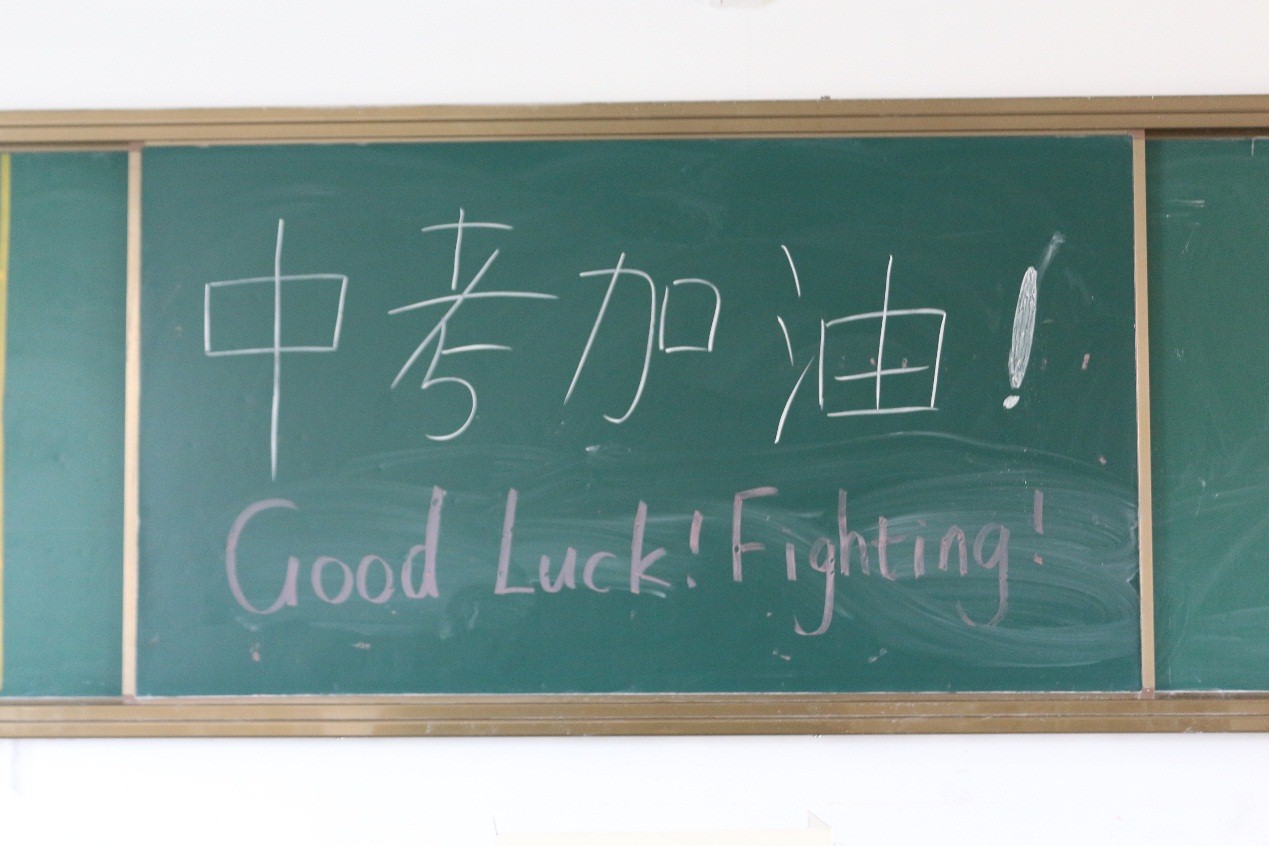 中考加油!
Good Luck! Fighting!